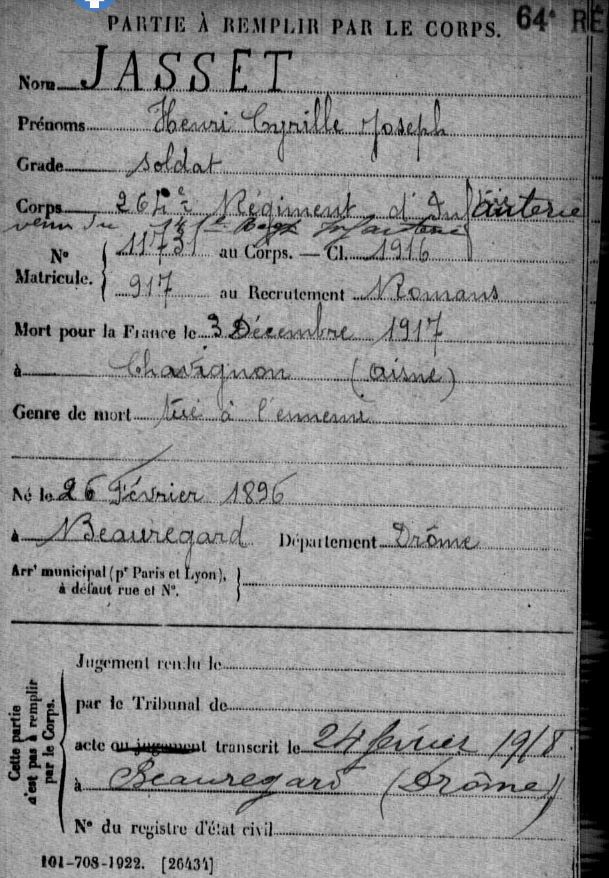 PARTIE À REMPLIR PAR LE CORPS. 64e RÉ
Nom JASSET
Prénoms Henri Cyrille Joseph
Grade soldat
Corps 264e Régiment d'Infanterie
venu du
N° Matricule. { 11731 au Corps. — Cl. 1916
917 au Recrutement Romans
Mort pour la France le 3 Décembre 1917
à Chavignon (Aisne)
Genre de mort tué à l'ennemi
Né le 26 Février 1896
à Beauregard Département Drôme
Arrt municipal (pr Paris et Lyon), }
à défaut rue et N°.
Cette partie n'est pas à remplir par le Corps.
Jugement rendu le
par le Tribunal de
acte ou jugement transcrit le 24 février 1918
à Beauregard (Drôme)
N° du registre d'état civil
101-708-1922. [26434]